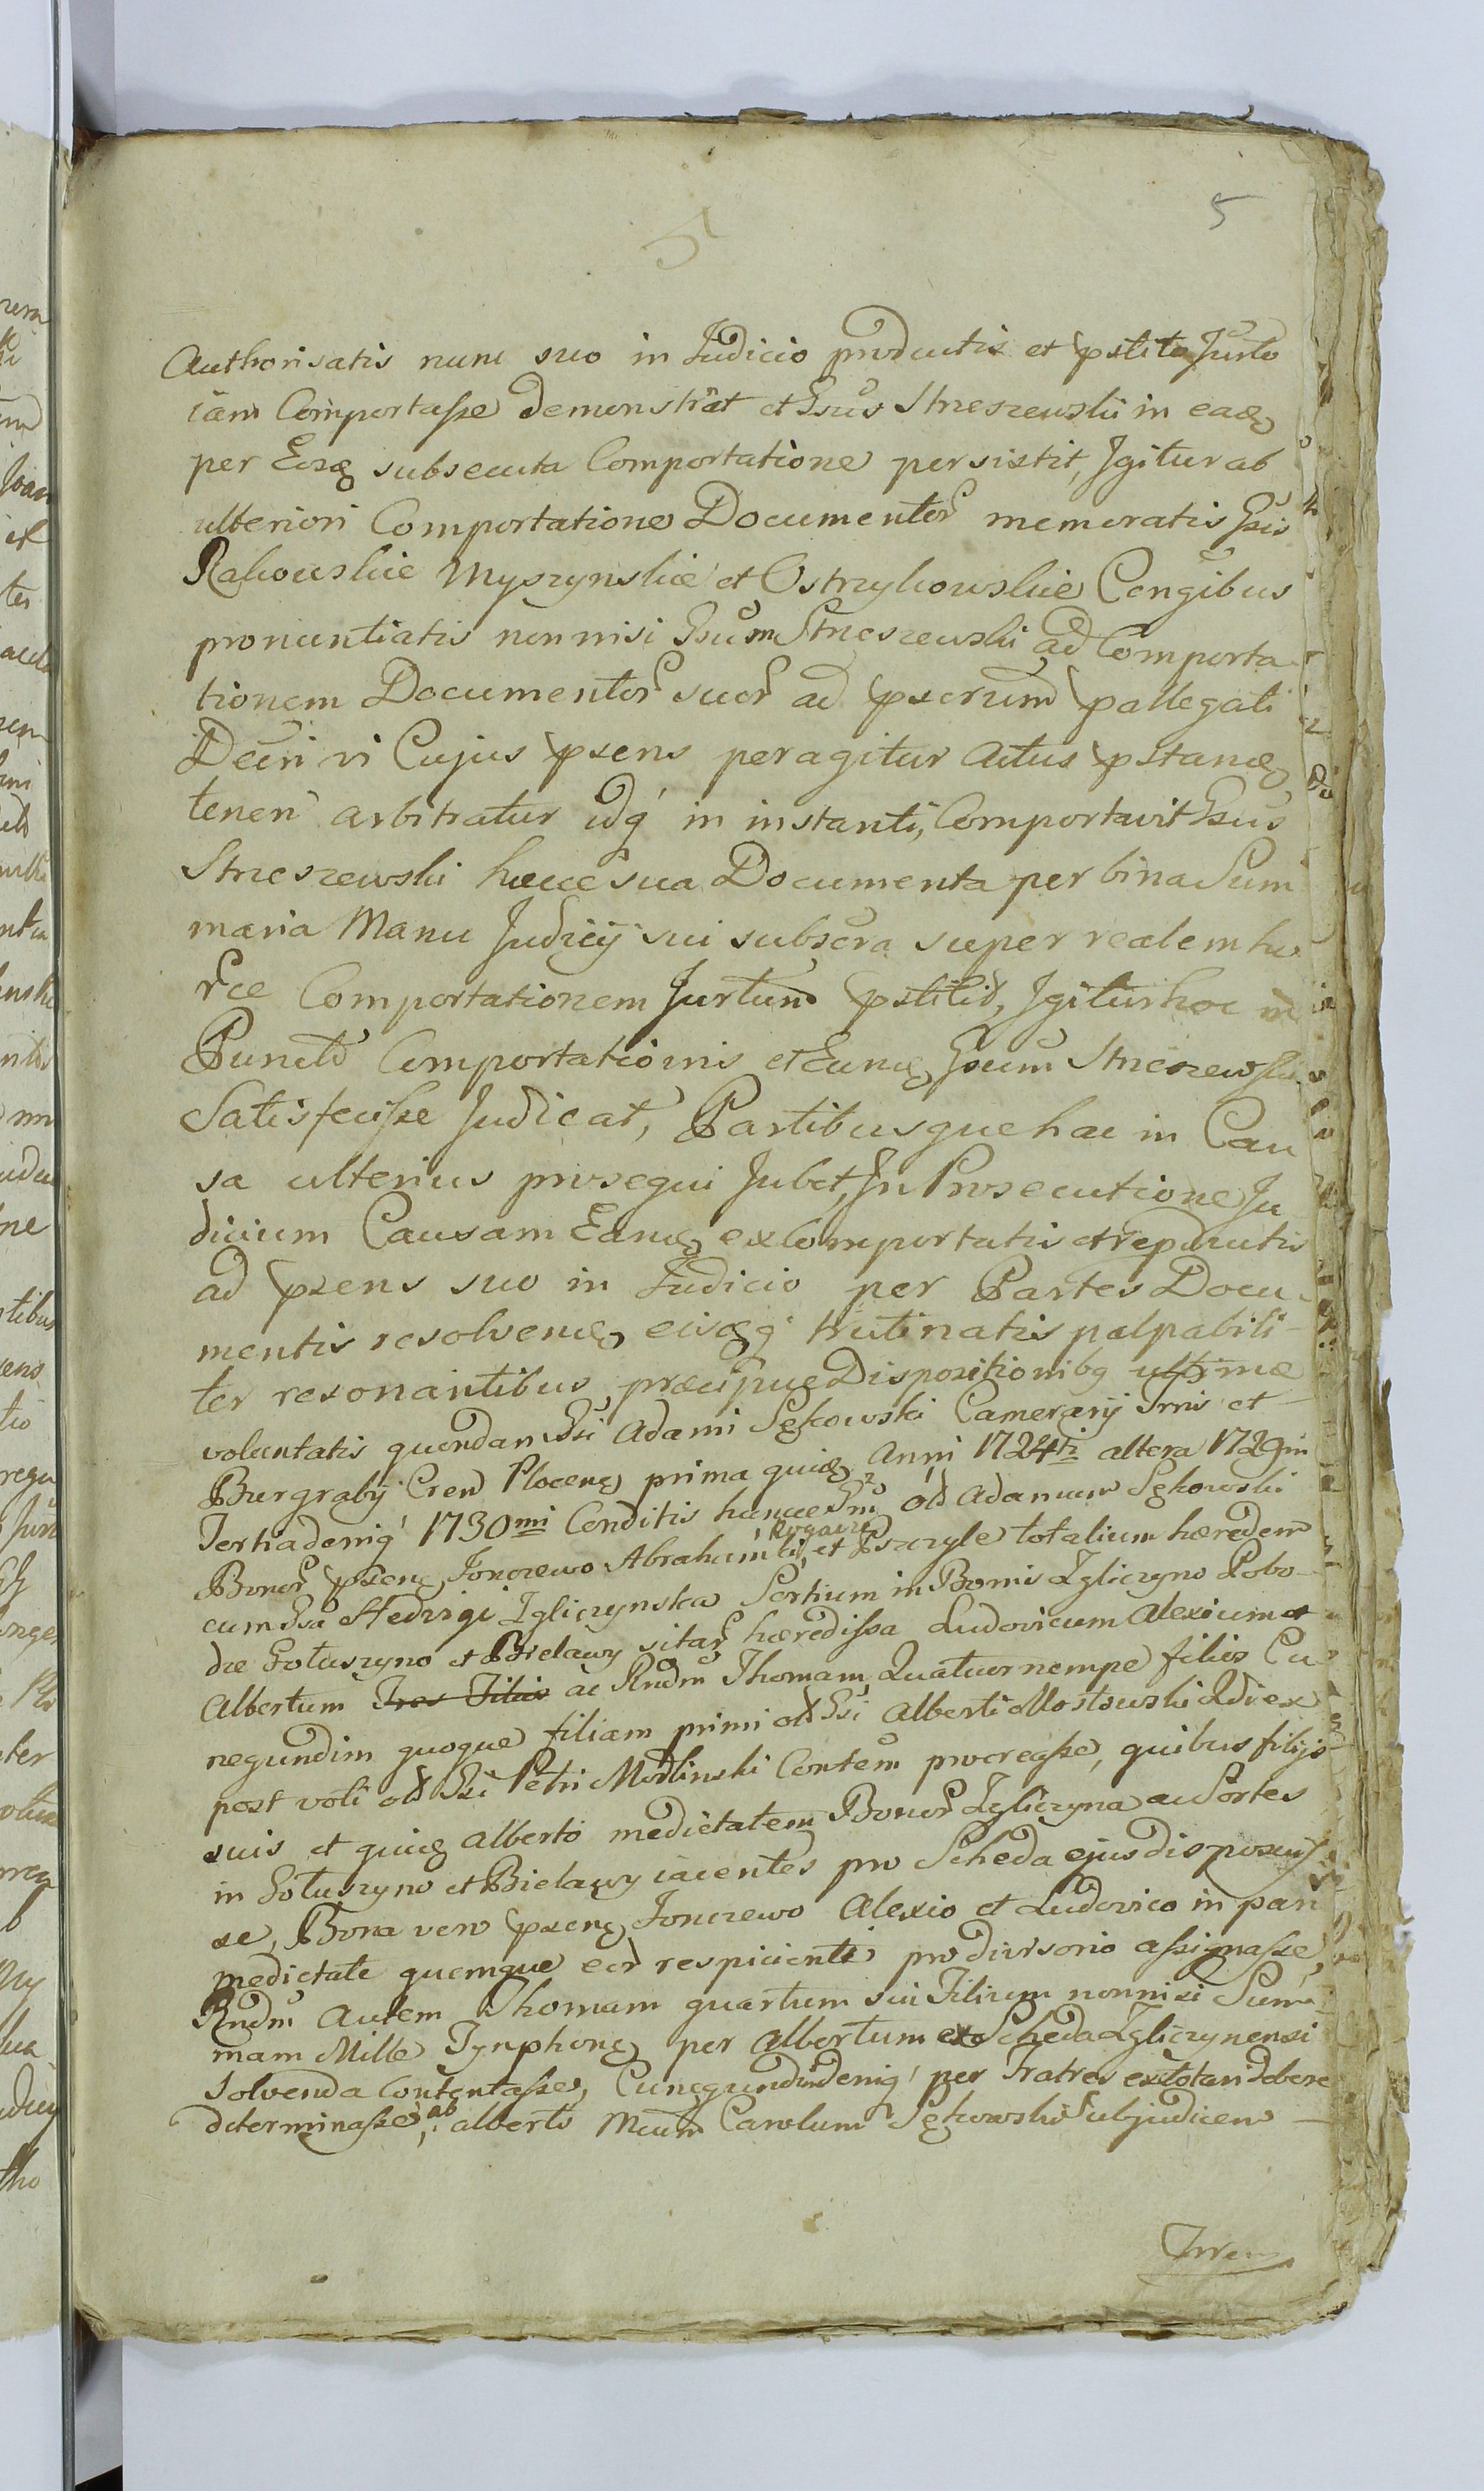 5
Authorisatis nunc suo in Judicio productis et pstito Jurto
iam Comportasse demonstrat et Gsus Streszewski in eade
per Eosde subsecuta Comportatione persistit, Igitur ab
ulteriori Comportatione Documentor memoratis Gsis
Rakowskie Myszynskie et Ostrzykowskie Congibus
pronuntiatis non nisi Gsum Streszewski ad Comporta
tionem Documentor suor ad pserum pallegati
Decri vi Cujus psens peragitur Actus pstande
teneri arbitratur idq in instanti, Comportavit Gsus
Streszewski hæcce sua Documenta per bina Sum
maria Manu Judicij sui subscra super realem ho
rce Comportationem Jurtum pstitit, Igitur hoc in
Puncto Comportationis et Eunde Gsum Streszewski
Satisfecisse Judicat, Partibusque hac in Cau
sa ulterius prosequi Jubet, In Prosecutione Ju
dicium Causam Eande ex Comportatis et reproductis
ad psens suo in Judicio per Partes Docu
mentis resolvende, eisdeq trutinatis palpabili
ter resonantibus, præcipue Dispositionibq ultimæ
voluntatis quondam Gsi Adami Sękowski Camerarij Trris et
Burgrabij Cren Plocene prima quide Anni 1724ti altera 1729ni
Tertia deniq 1730mi Conditis huncce Gm old Adamum Sękowski
Bonor psene Jonczewo Abrahami et Pszczyle totalium hæredem
cum Gsa Hedvigi Zgliczynska Sortium in Bonis Zgliczyno Pobo
dze Gołuszyno et Bielawy sitar hæredissa Ludovicum Alexium et
Albertum Tres Filios ac Rndm Thomam Quatuor nempe filios Cu
negundim quoque filiam primi old Gsi Alberti Mostowski Qdi ex
post voti old Gsi Petri Modlinski Contem procreasse, quibus filijs
suis et quide Alberto medietatem Bonor Zgliczyna ac Sortes
in Gołuszyno et Bielawy iacentes pro Scheda ejus disposuis
se, Bona vero psene Jonczewo Alexio et Ludovico in pari
medietate quemque eor respicienti pro divisorio assignasse,
Rndm Autem Thomam quartum sui Filium nonnisi Sum
mam Mille Tynphone per Albertum ex Scheda Zgliczynensi
Solvenda Contentasse, Cunegundim deniq per Fratres exdotari debere
determinasse, ab Alberto Mcum Carolum Sękowski Subjudicem
Trren